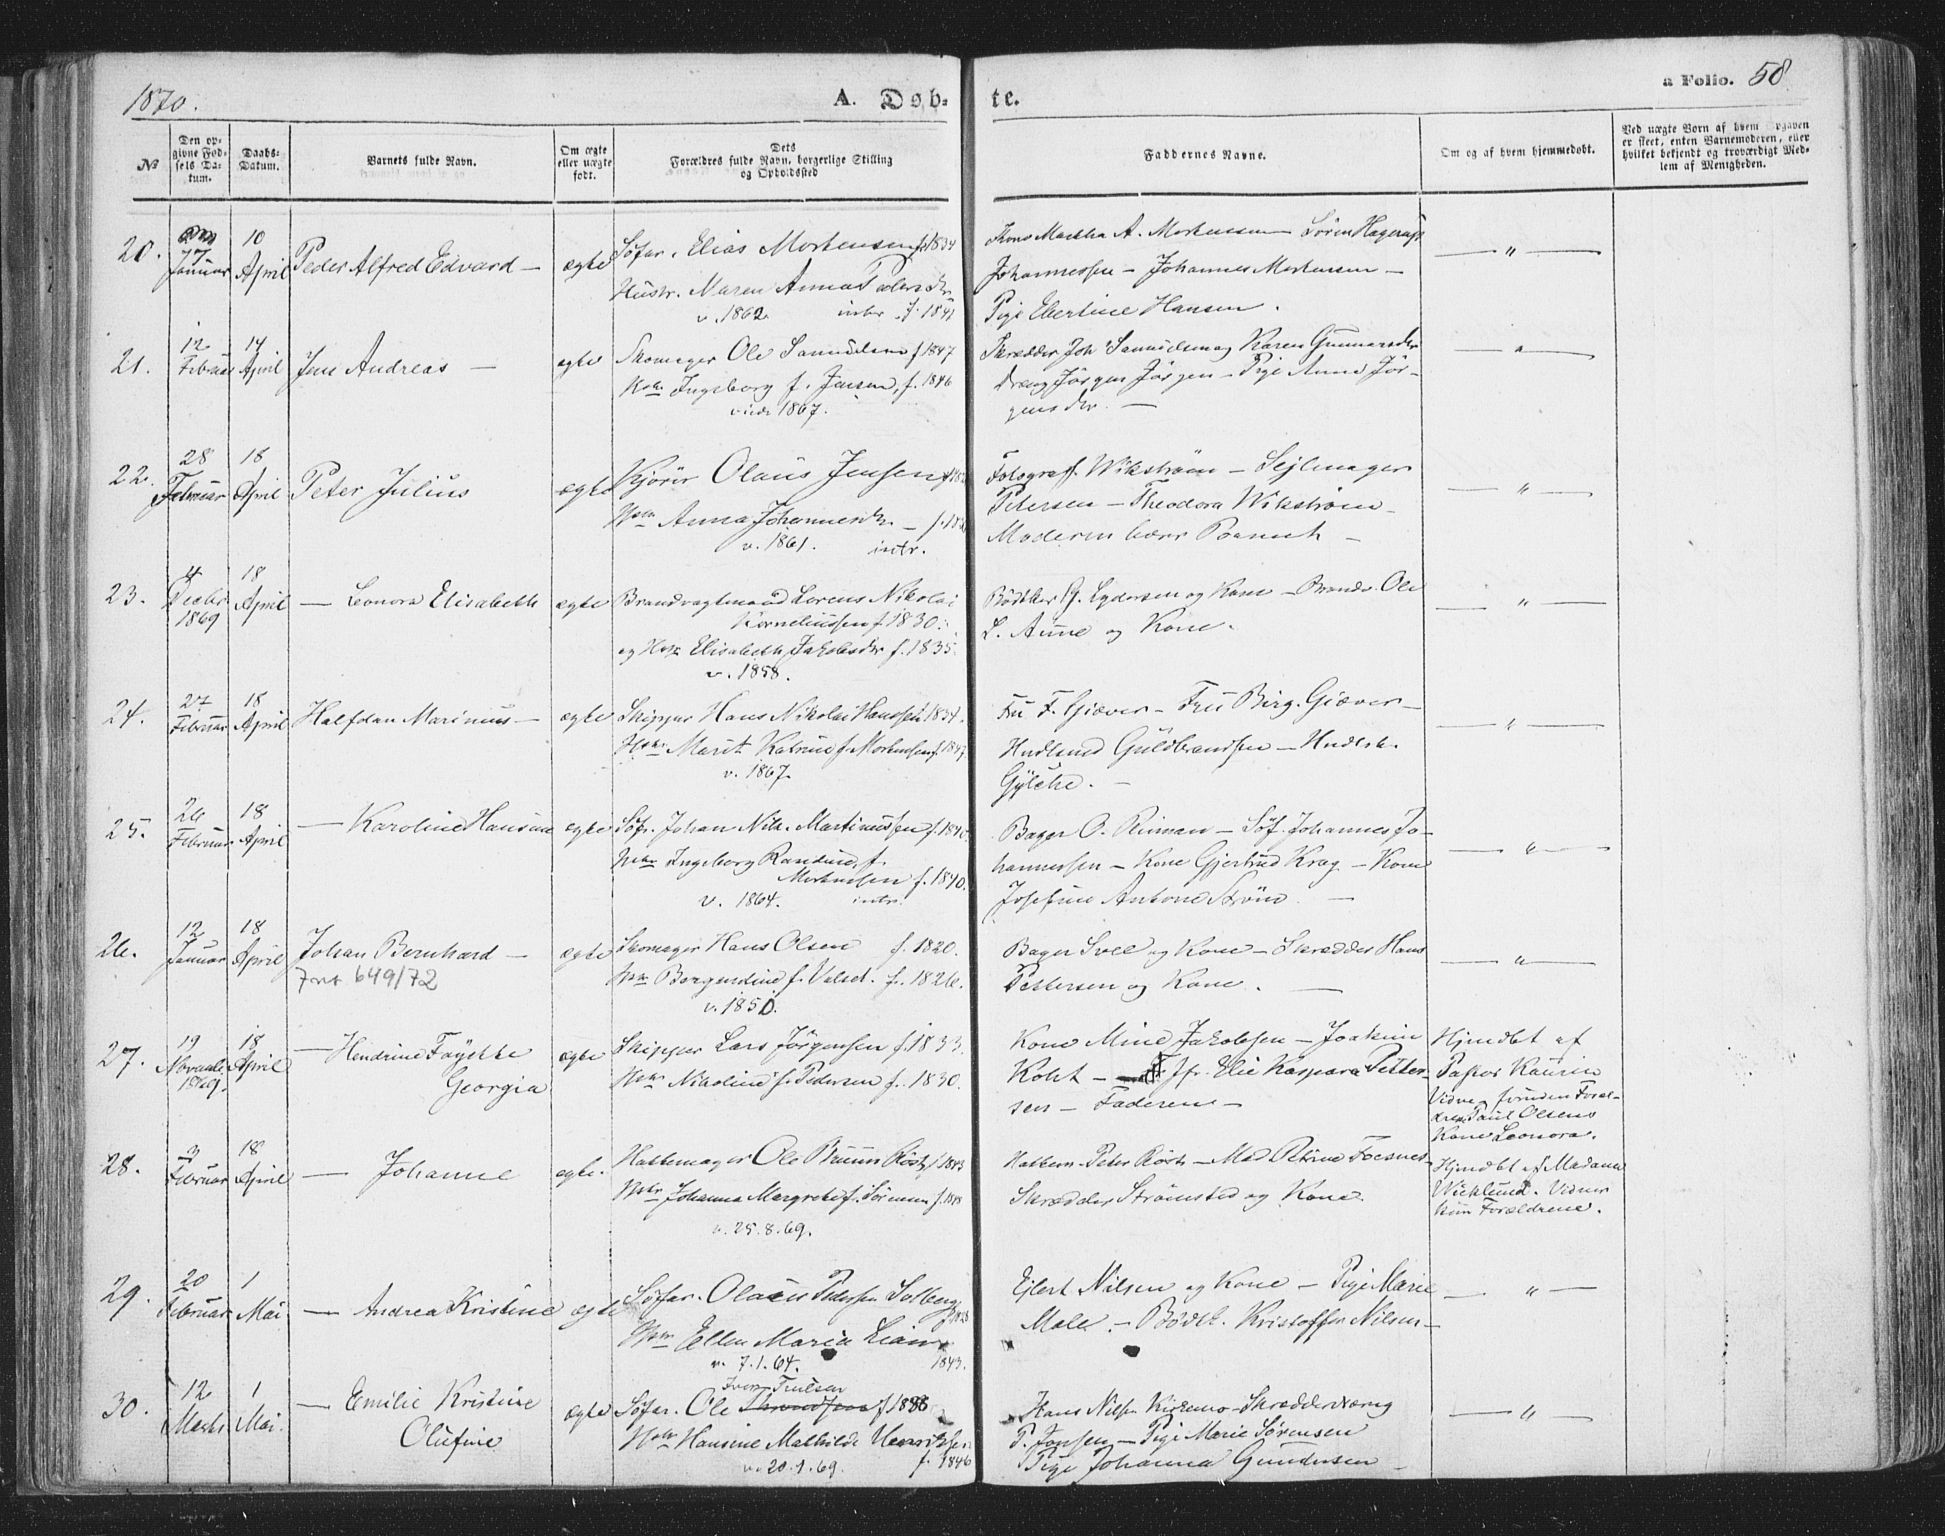 1870.
A. Døb-
te.
a Folio. 58
№
Den op-
givne Fød-
sels Da-
tum.
Daabs-
Datum.
Barnets fulde Navn.
Om ægte
eller uægte
født.
Dets
Forældres fulde Navn, borgerlige Stilling
og Opholdssted
Faddernes Navne.
Om og af hvem hjemmedøbt.
Ved uægte Børn af hvem Opgaven
er skeet, enten Barnemoderen, eller
hvilket bekjendt og troværdigt Med-
lem af Menigheden.
20.
Januar
10
April
Peder Alfred Edvard —
ægte
Søfar. Elias Mortensen f. 1834
Hustr. Maren Anna Pedersdtr
v. 1862. intr. f. 1841
Kone Martha A. Mortensen — Søren Hagerup
Johannessen — Johannes Mortensen —
Pige Ebertine Hansen.
— " —
21.
12
Februar
14
April
Jens Andreas —
ægte
Skomager Ole Samuelsen f. 1847
Kne Ingeborg f. Jensen, f. 1846
viede 1867.
Skrædder Joh Samuelsen og Karen Gunnarsdtr
Dreng Jørgen Jørgen — Pige Anna Jør-
gensdtr. —
— " —
22.
28
Februar
18
April
Peter Julius
ægte
Kjører Olaus Jensen
Hstr Anna Johannesdtr —
v. 1861. intr.
Fotograf Wikstrøm — Sejlmager
Petersen — Theodora Wikstrøm —
Moderen bærer Barnet —
— " —
23.
4
Decbr
1869
18
April
— Leonora Elisabeth
ægte
Brandvagtmand Lorens Nikolai
Korneliussen f. 1830.
og Hstr Elisabeth Jakobsdtr f. 1835.
v. 1858.
Bødtker G. Lydersen og Kone — Brandv. Ole
L. Aune og Kone.
— " —
24.
27
Februar
18
April
Halfdan Marinius —
ægte
Skipper Hans Nikolai Hanssen 1834.
Hstr Marit Katrine f. Mortensen f. 1847.
v. 1867.
Fru F. Giæver — Fru Birg. Giæver —
Hndlsmd Guldbrandsen — Hndlsb.
Gylche. —
— " —
25.
26
Februar
18
April
— Karoline Hansine
ægte
Søf. Johan Nik. Martinussen f. 1840.
Hstr Ingeborg Randine f.
Mortensen f. 1840.
v. 1864. intr.
Bager O. Riiman — Søf. Johannes Jo-
hannessen — Kone Gjertrud Krag — Kone
Josefine Antone Strøm —
— " —
26.
12
Januar
18
April
Johan Bernhard —
649/72
ægte
Skomager Hans Olsen f. 1820.
Hstr Bergendine f. Valset. f. 1826.
v. 1851.
Bager Svee og Kone — Skrædder Hans
Pettersen og Kone. —
— " —
27.
19
Novembr
1869.
18
April
— Hendrine Føykke
Georgia
ægte
Skipper Lars Jørgensen f. 1833.
Hstr Nikoline f. Pedersen f. 1830.
Kone Mine Jakobsen — Joakim
Koht — Jfr. Elie Kaspara Petter-
sen — Faderen —
Hjmdbt af
Pastor Kaurin
Vidne foruden Foræl-
drene Paul Olsens
Kone Leonora.
28.
3
Februar
18
April
— Johanne
ægte.
Hattemager Ole Bruun Røst f. 1843
Hstr Johanna Margrete f. Sørensen f. 1848
v. 25.8.69.
Hattem. Peter Røst — Mad Petrine Foesnes
Skrædder Strømsted og Kone.
Hjmdbt af Madame
Wicklund. Vidner
kun Forældrene.
29.
20
Februar
1
Mai.
— Andrea Kristine
ægte
Søfar. Olaus Pedersen Solberg
Hstr Ellen Maria
v. 7.1.64. 1843.
Ejlert Nilsen og Kone — Pige Marie
Male. — Bødtk. Kristoffer Nilsen —
— " —
30.
12
Marts
1
Mai.
— Emilie Kristine
Olufine
ægte
Iver Trulsen
Søfar. Ole
Hstr Hansine Mathilde Henriksen
v. 20.1.69. f. 1846
Hans Nilsen Kirkemo — Skrædderdreng
P. Jonsen — Pige Marie Sørensen
Pige Johanna Gundersen —
— " —